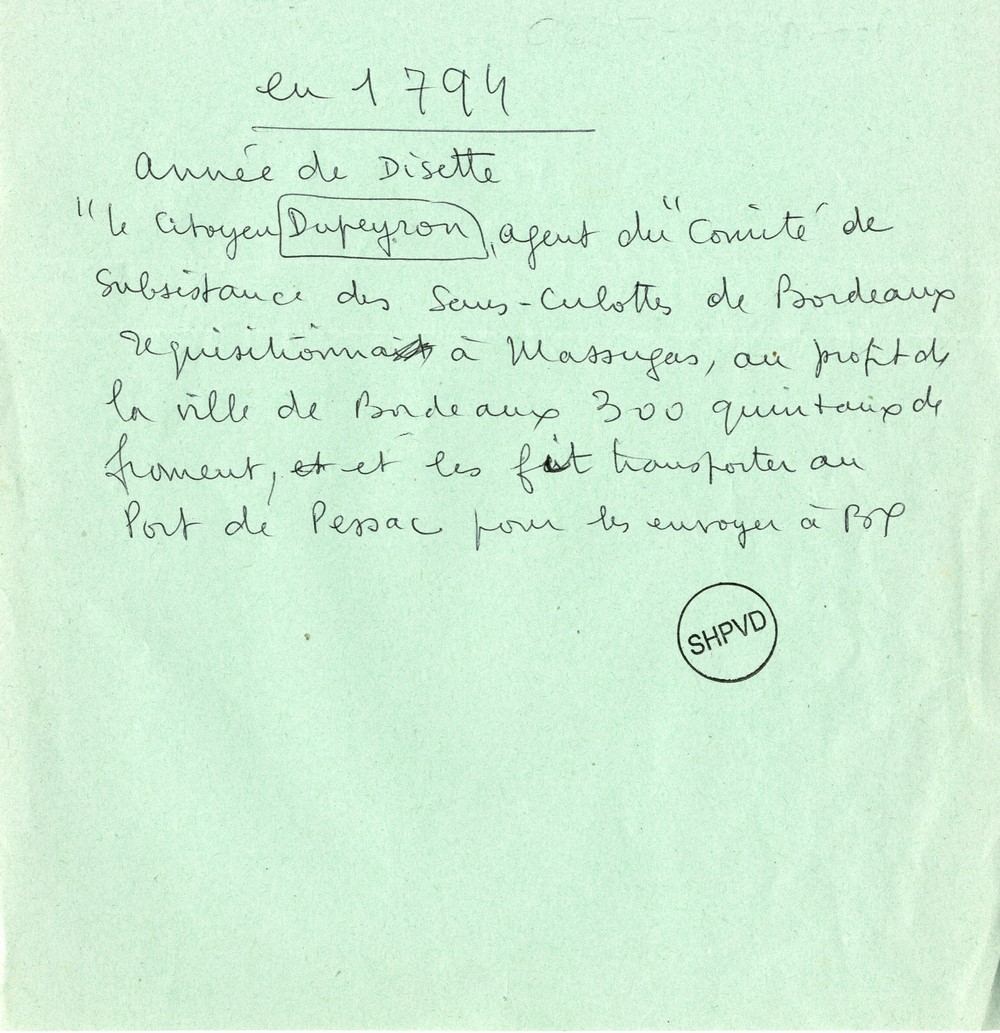 en 1794
Année de Disette
"le Citoyen Dupeyron, agent du "Comité de
Subsistance des Sans-Culottes de Bordeaux
requisitionna à Massugas, au profit de
la ville de Bordeaux 300 quintaux de
froment, et et les fit transporter au
Port de Pessac pour les envoyer à BX
SHPVD